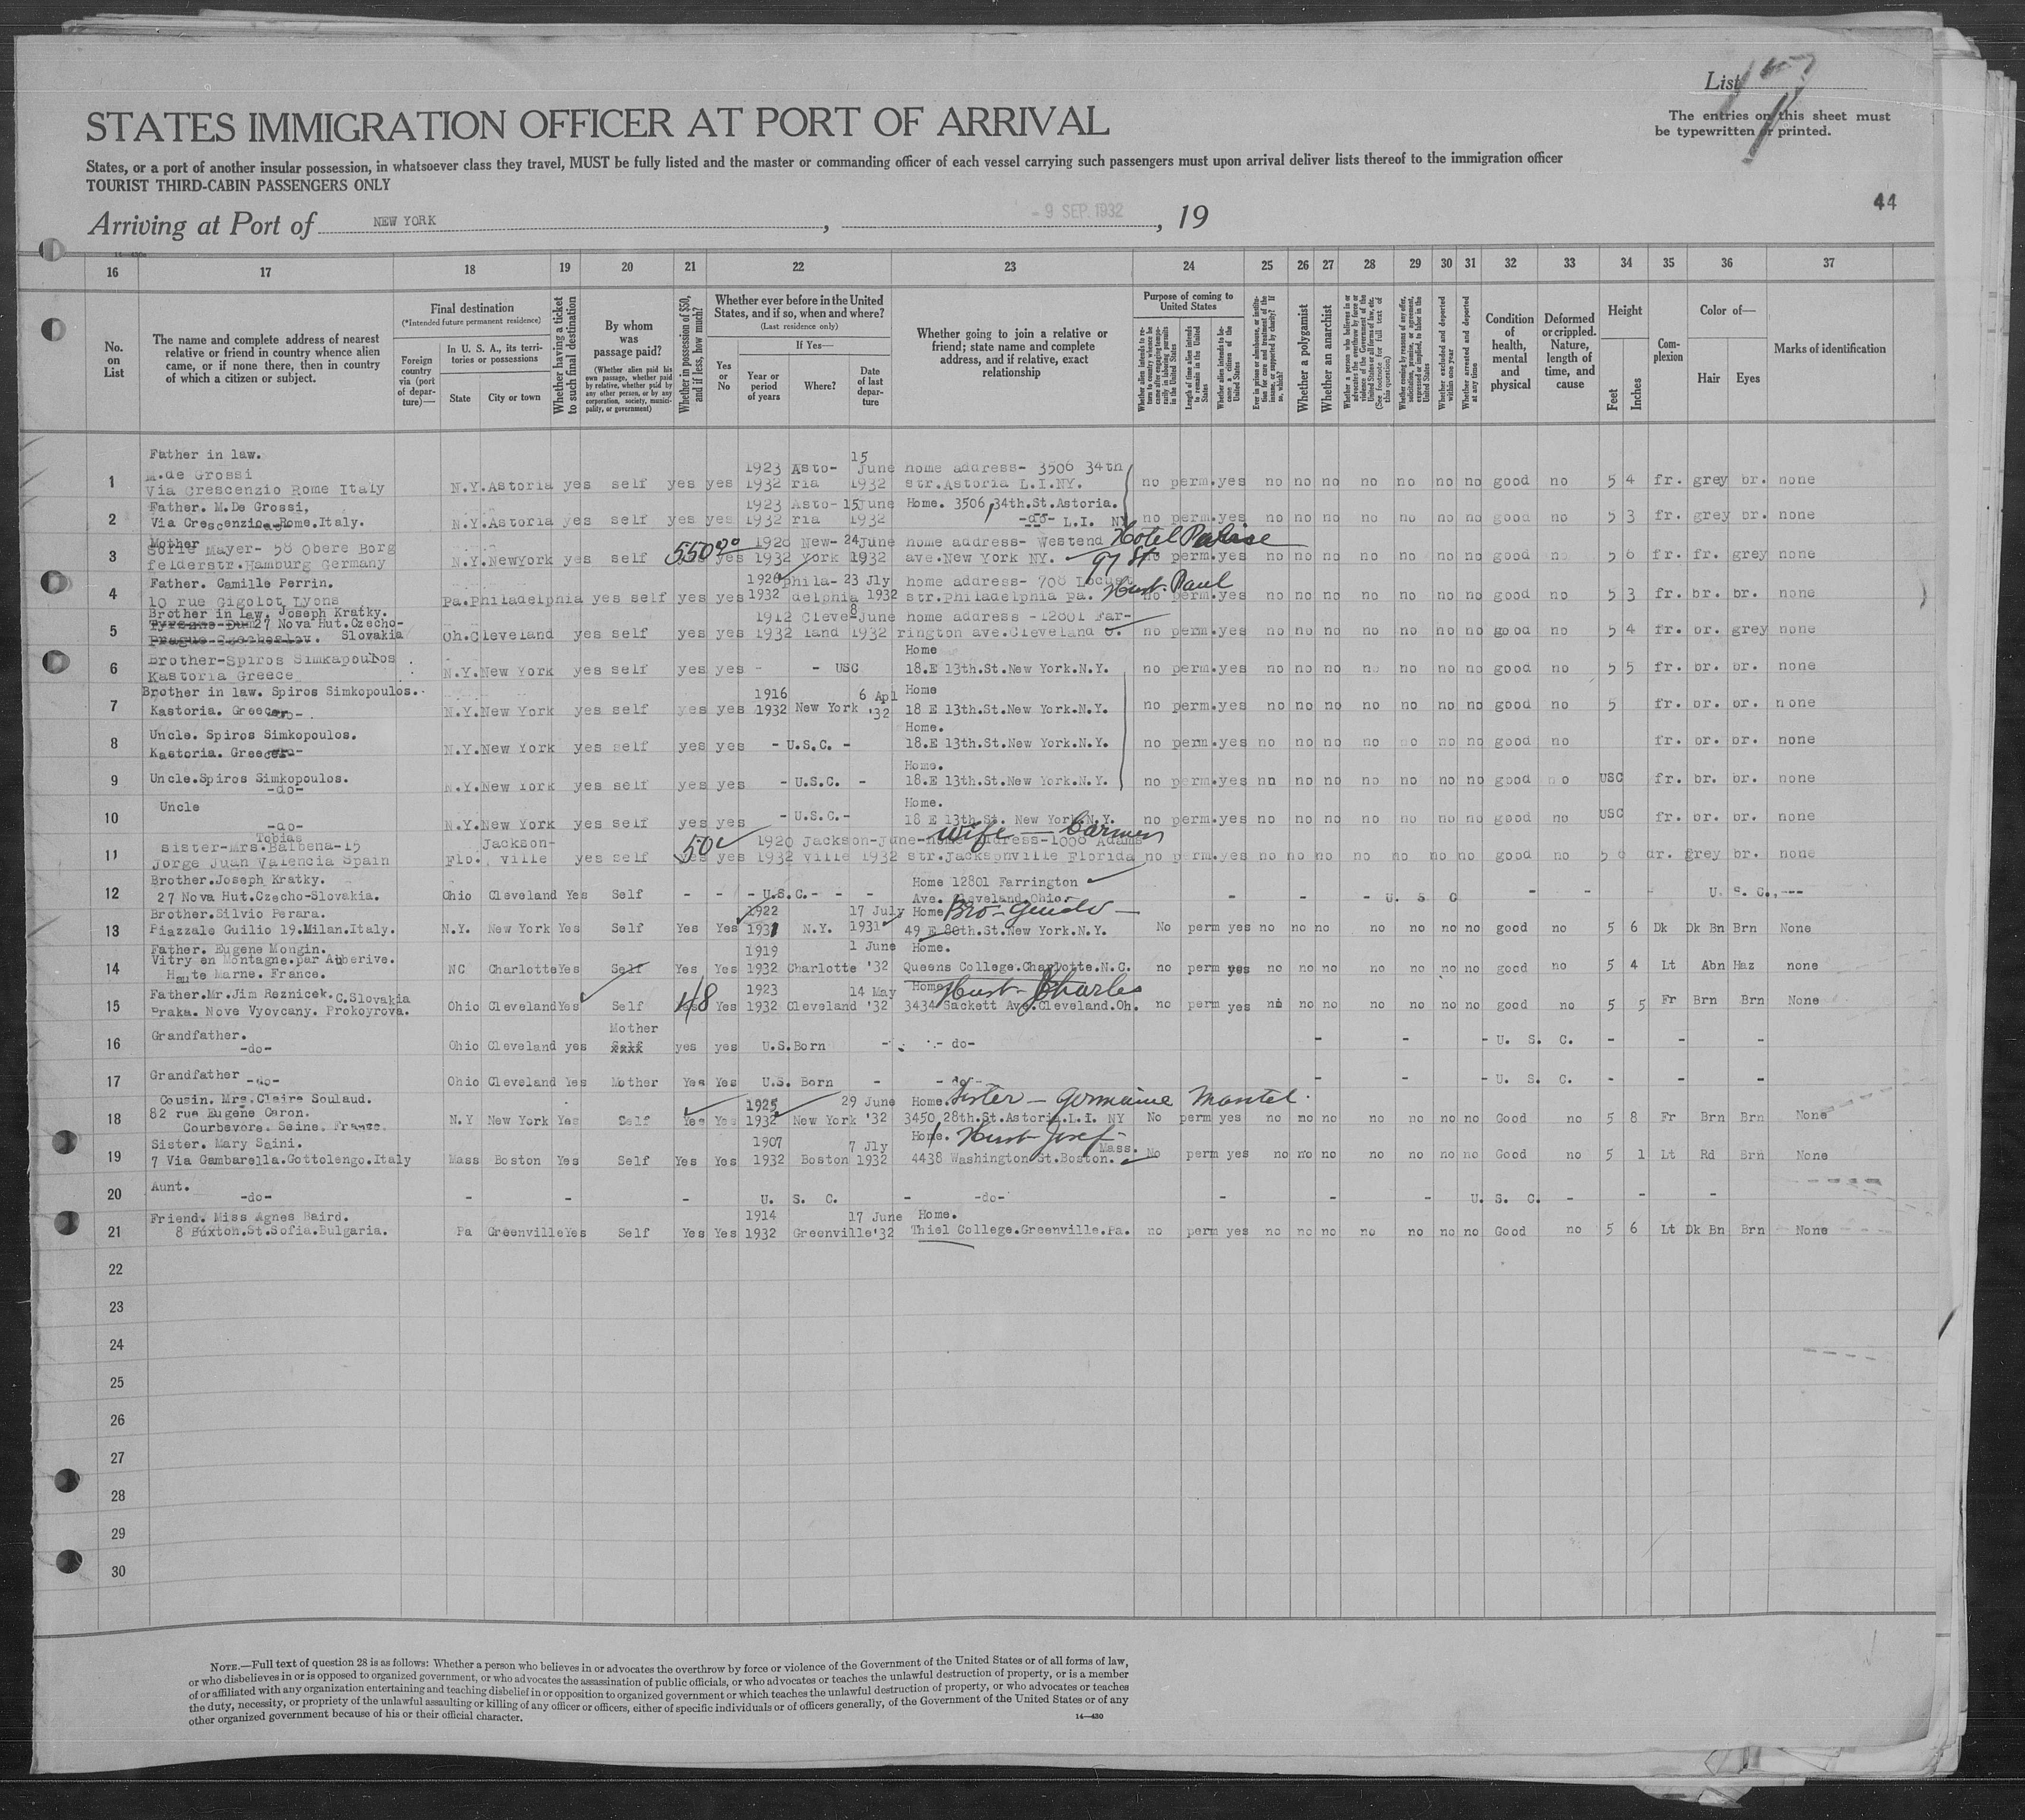 List
The entries on this sheet must
be typewritten or printed.
STATES IMMIGRATION OFFICER AT PORT OF ARRIVAL
States, or a port of another insular possession, in whatsoever class they travel, MUST be fully listed and the master or commanding officer of each vessel carrying such passengers must upon arrival deliver lists thereof to the immigration officer
TOURIST THIRD-CABIN PASSENGERS ONLY
44
Arriving at Port of NEW YORK , - 9 SEP. 1932 , 19
16 17 18 19 20 21 22 23 24 25 26 27 28 29 30 31 32 33 34 35 36 37
No. on List
The name and complete address of nearest relative or friend in country whence alien came, or if none there, then in country of which a citizen or subject.
Final destination
(*Intended future permanent residence)
Foreign country via (port of departure)—
In U. S. A., its territories or possessions
State City or town
Whether having a ticket to such final destination
By whom was passage paid?
(Whether alien paid his own passage, whether paid by relative, whether paid by any other person, or by any corporation, society, municipality, or government)
Whether in possession of $50, and if less, how much?
Whether ever before in the United States, and if so, when and where?
(Last residence only)
Yes or No
If Yes—
Year or period of years Where? Date of last departure
Whether going to join a relative or friend; state name and complete address, and if relative, exact relationship
Purpose of coming to United States
Whether alien intends to return to country whence he came after engaging temporarily in laboring pursuits in the United States
Length of time alien intends to remain in the United States
Whether alien intends to become a citizen of the United States
Ever in prison or almshouse, or institution for care and treatment of the insane, or supported by charity? If so, which?
Whether a polygamist
Whether an anarchist
Whether a person who believes in or advocates the overthrow by force or violence of the Government of the United States or all forms of law, etc. (See footnote for full text of this question)
Whether coming by reason of any offer, solicitation, promise, or agreement, expressed or implied, to labor in the United States
Whether excluded and deported within one year
Whether arrested and deported at any time
Condition of health, mental and physical
Deformed or crippled. Nature, length of time, and cause
Height
Feet Inches
Complexion
Color of—
Hair Eyes
Marks of identification
Father in law. 15
M.de Grossi 1923 Asto- June home address- 3506 34th
1 Via Crescenzio Rome Italy N.Y. Astoria yes self yes yes 1932 ria 1932 str.Astoria L.I.NY. no perm. yes no no no no no no no good no 5 4 fr. grey br. none
Father. M.De Grossi, 1923 Asto- 15June Home. 3506,34th.St.Astoria.
2 Via Crescenzio Rome.Italy. N.Y. Astoria yes self yes yes 1932 ria 1932 -do- L.I. NY no perm. yes no no no no no no no good no 5 3 fr. grey br. none
Mother
Sofie Mayer- 58 Obere Borg 550 1928 New- 24June home address- Westend Hotel
3 felderstr.Hamburg Germany N.Y. NewYork yes self yes yes 1932 York 1932 ave.New York NY. 97 St no perm. yes no no no no no no no good no 5 6 fr. fr. grey none
Father. Camille Perrin. 1920 Phila- 23 Jly home address- 708 Locust Hust. Paul
4 10 rue Gigolot Lyons Pa. Philadelphia yes self yes yes 1932 delphia 1932 str.philadelphia pa. no perm. yes no no no no no no no good no 5 3 fr. br. br. none
Brother in Law. Joseph Kratky. 8
27 Nova Hut.Czecho- 1912 Cleve- June home address -12801 Far-
5 Slovakia Oh. Cleveland yes self yes yes 1932 land 1932 rington ave.Cleveland O. no perm. yes no no no no no no no good no 5 4 fr. br. grey none
Brother-Spiros Simkapoulos Home
6 Kastoria Greece N.Y. New York yes self yes yes - - USC 18.E 13th.St.New York.N.Y. no perm. yes no no no no no no no good no 5 5 fr. br. br. none
Brother in law. Spiros Simkopoulos. 1916 6 Apl Home
7 Kastoria. Greece N.Y. New York yes self yes yes 1932 New York '32 18 E 13th.St.New York.N.Y. no perm. yes no no no no no no no good no 5 fr. br. br. none
Uncle. Spiros Simkopoulos. Home.
8 Kastoria. Greece N.Y. New York yes self yes yes - U.S.C. - 18.E 13th.St.New York.N.Y. no perm. yes no no no no no no no good no fr. br. br. none
Home.
9 Uncle.Spiros Simkopoulos. N.Y. New York yes self yes yes - U.S.C. - 18.E 13th.St.New York.N.Y. no perm. yes no no no no no no no good no USC fr. br. br. none
-do-
Uncle Home.
10 -do- N.Y. New York yes self yes yes - U.S.C.- 18 E 13th.St. New York N.Y. no perm. yes no no no no no no no good no USC fr. br. br. none
Tobias wife — Carmen
sister-Mrs.Balbena-15 Jackson- 50 1920 Jackson- June- home address-1008 Adams
11 Jorge Juan Valencia Spain Flo. ville yes self yes yes 1932 ville 1932 str.Jacksonville Florida no perm. yes no no no no no no no good no 5 6 dr. grey br. none
Brother.Joseph Kratky. Home 12801 Farrington
12 27 Nova Hut.Czecho-Slovakia. Ohio Cleveland Yes Self - - - U.S.C.- - - Ave. Cleveland.Ohio. - - - U. S. C - - - U. S. C.,---
Brother.Silvio Perara. 1922 17 July Home Bro- Guido —
13 Piazzale Guilio 19.Milan.Italy. N.Y. New York Yes Self Yes Yes 1931 N.Y. 1931 49 E 80th.St.New York.N.Y. No perm yes no no no no no no no good no 5 6 Dk Dk Bn Brn None
Father. Eugene Mongin. 1919 1 June Home.
Vitry en Montagne.par Auberive.
14 Haute Marne. France. NC Charlotte Yes Self Yes Yes 1932 Charlotte '32 Queens College.Charlotte.N.C. no perm yes no no no no no no no good no 5 4 Lt Abn Haz none
Father.Mr.Jim Reznicek. C.Slovakia 1923 14 May Home Hust- Charles
15 Praka. Nove Vyovcany. Prokoyrova. Ohio Cleveland Yes Self Yes 1932 Cleveland '32 3434 Sackett Ave.Cleveland.Oh. no perm yes no no no no no no no good no 5 5 Fr Brn Brn None
Grandfather. Mother
16 -do- Ohio Cleveland yes xxxx yes yes U.S.Born - - do- - - - U. S. C. - - -
17 Grandfather -do- Ohio Cleveland Yes Mother Yes Yes U.S. Born - - do - - - - U. S. C. - - -
Cousin. Mrs.Claire Soulaud. 1925 29 June Home. Sister — Germaine Mantel.
18 82 rue Eugene Caron. N.Y New York Yes Self Yes Yes 1932 New York '32 3450,28th.St.Astoria.L.I. NY No perm yes no no no no no no no Good no 5 8 Fr Brn Brn None
Courbevore. Seine. France.
Sister. Mary Saini. 1907 7 Jly Home. Hust- Josef- Mass.
19 7 Via Gambarella.Gottolengo.Italy Mass Boston Yes Self Yes Yes 1932 Boston 1932 4438 Washington St.Boston. No perm yes no no no no no no no Good no 5 1 Lt Rd Brn None
Aunt.
20 -do- - - - U. S. C. - -do- - - - U. S. C. - - -
Friend. Miss Agnes Baird. 1914 17 June Home.
21 8 Buxton.St.Sofia.Bulgaria. Pa Greenville Yes Self Yes Yes 1932 Greenville '32 Thiel College.Greenville.Pa. no perm yes no no no no no no no Good no 5 6 Lt Dk Bn Brn None
22
23
24
25
26
27
28
29
30
NOTE.—Full text of question 28 is as follows: Whether a person who believes in or advocates the overthrow by force or violence of the Government of the United States or of all forms of law,
or who disbelieves in or is opposed to organized government, or who advocates the assassination of public officials, or who advocates or teaches the unlawful destruction of property, or is a member
of or affiliated with any organization entertaining and teaching disbelief in or opposition to organized government or which teaches the unlawful destruction of property, or who advocates or teaches
the duty, necessity, or propriety of the unlawful assaulting or killing of any officer or officers, either of specific individuals or of officers generally, of the Government of the United States or of any
other organized government because of his or their official character.
14—430